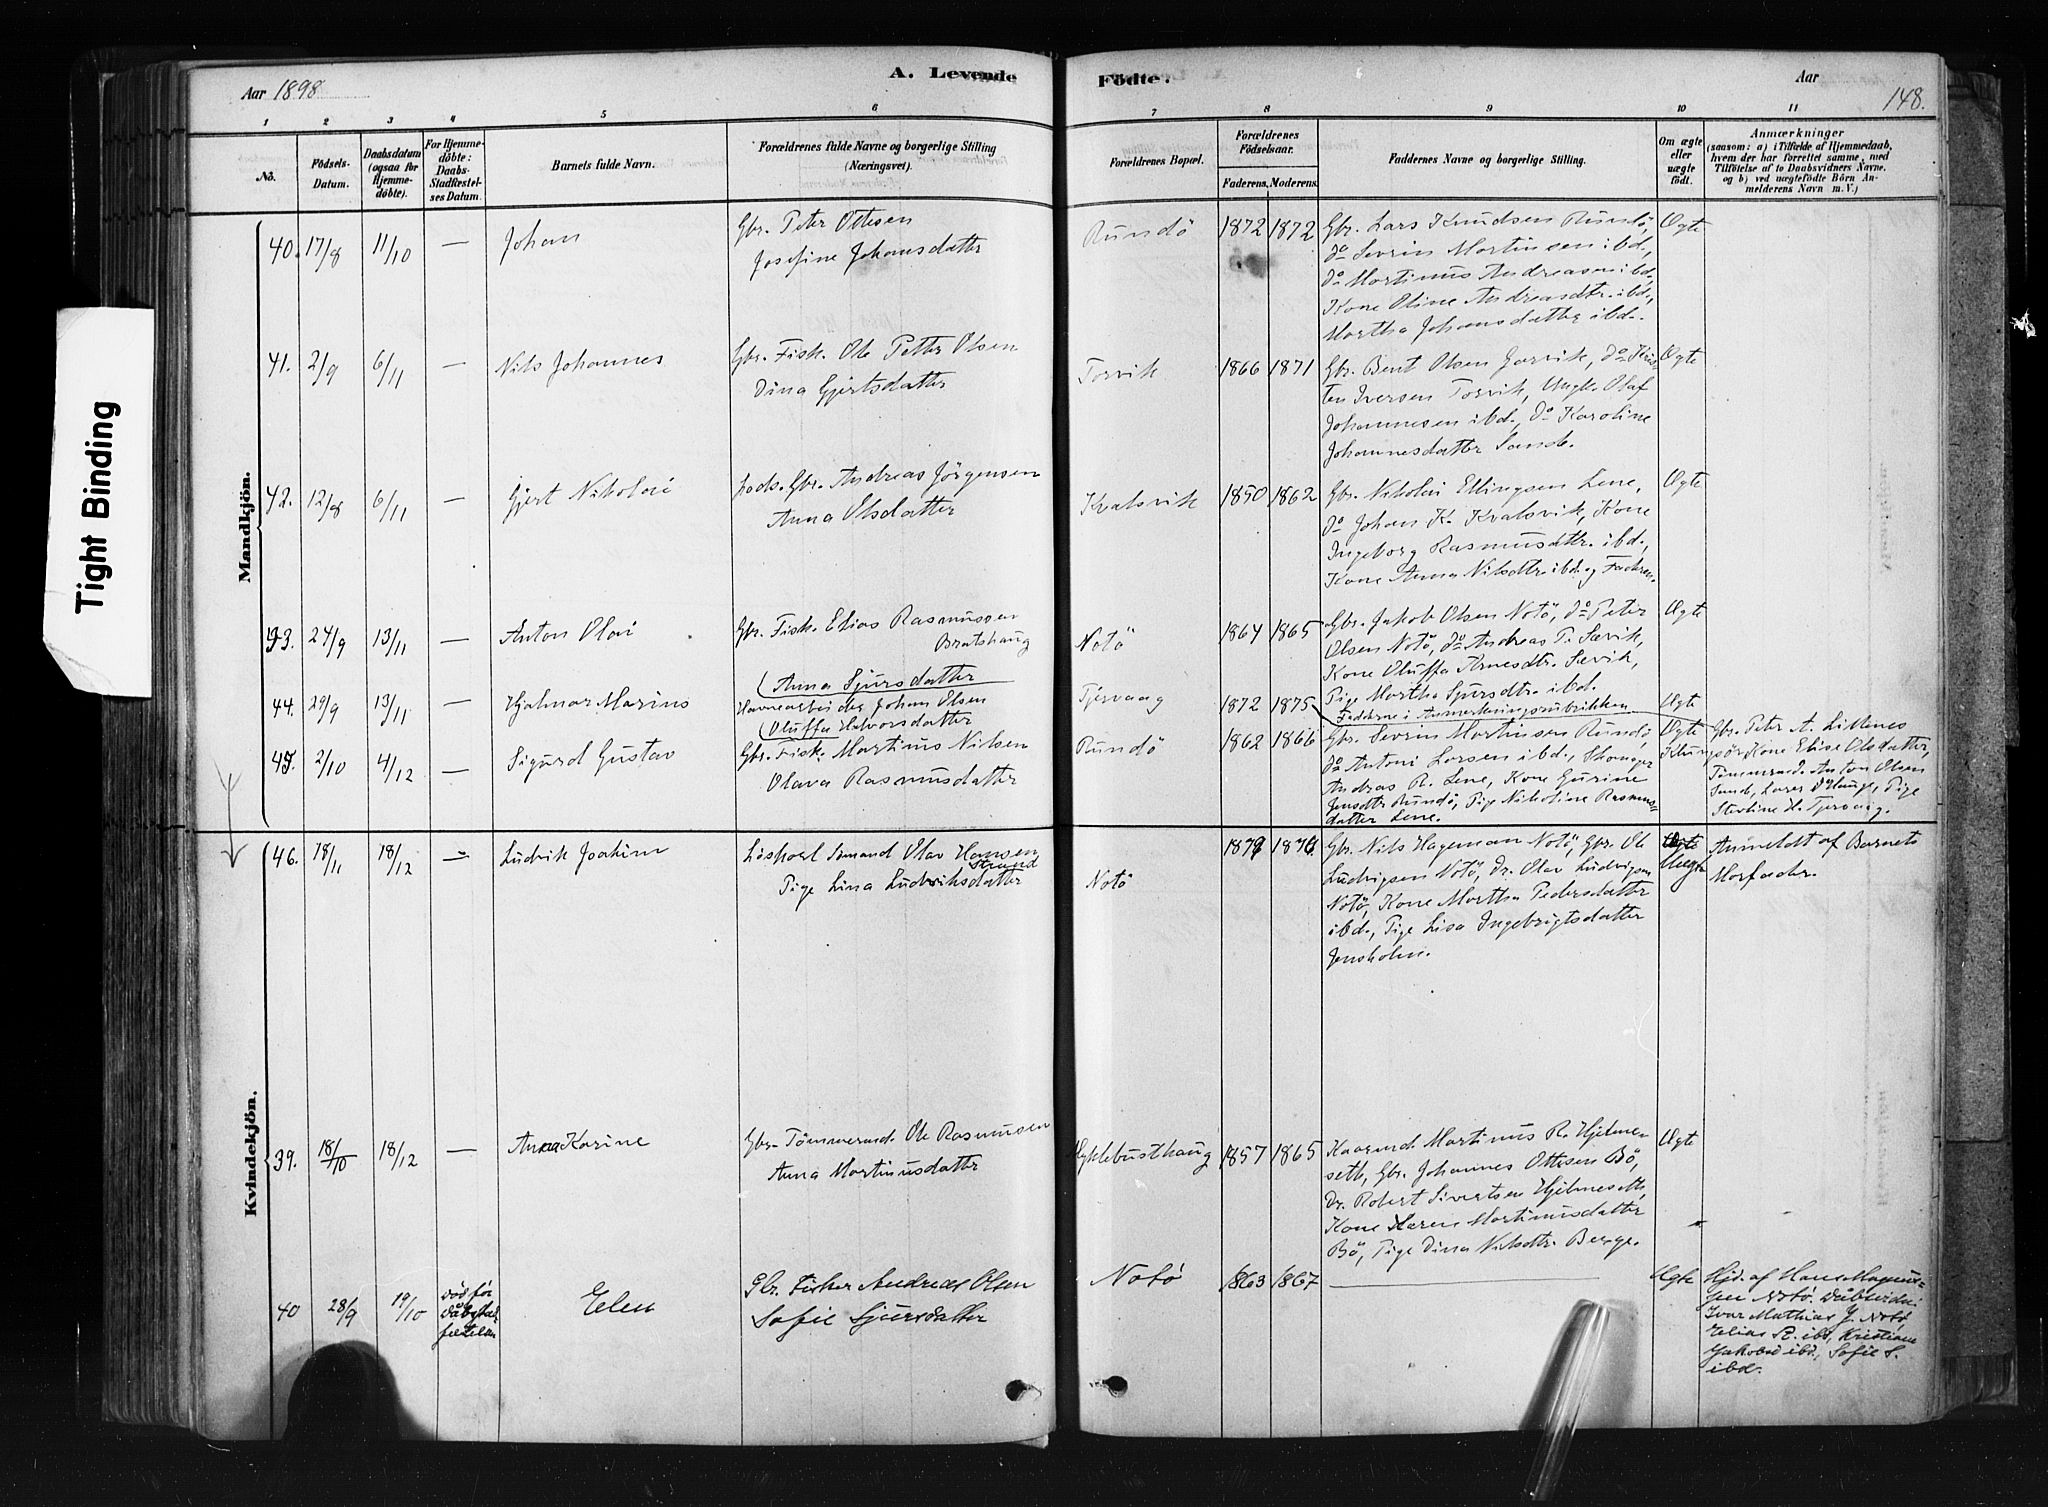 Aar 1898
A. Levende
Födte.
Aar
148.
1 2 3 4 5 6 7 8 9 10 11
No.
Födsels-
Datum.
Daabsdatum
(ogsaa for
Hjemme-
döbte).
For Hjemme-
döbte:
Daabs-
Stadfæstel-
ses Datum.
Barnets fulde Navn.
Forældrenes fulde Navne og borgerlige Stilling
(Næringsvei).
Forældrenes Bopæl.
Forældrenes
Födselsaar.
Faderens. Moderens.
Faddernes Navne og borgerlige Stilling.
Om ægte
eller
uægte
födt.
Anmærkninger
(saasom: a) i Tilfælde af Hjemmedaab,
hvem der har forrettet samme, med
Tilföielse af to Daabsvidners Navne,
og b) ved uægtefödte Börn An-
melderens Navn m. V.)
Tight Binding
Mandkjön.
40. 17/8 11/10 — Johan
Gbr. Peter Ottesen
Josefine Johansdatter
Rundö 1872 1872
Gbr. Lars Knudsen Rundö,
do Sevrin Martinsen ibd.,
do Martinus Andreasen ibd.,
Kone Oline Andreasdtr. ibd.,
Martha Johansdatter ibd.
Ægte
41. 2/9 6/11 — Nils Johannes
Gbr. Fisk. Ole Petter Olsen
Dina Gjertsdatter
Torvik 1866 1871
Gbr. Bent Olsen
Iversen Torvik, Ungk. Olaf
Johannesen ibd., do Karoline
Johannesdatter Sande.
Ægte
42. 12/8 6/11 — Gjert Nikolai
Gbr. Andreas Jörgensen
Anna Olsdatter
Kvalsvik 1850 1862
Gbr. Nikolai Ellingsen Lene,
do Johan K. Kvalsvik, Kone
Ingeborg Rasmusdtr. ibd.,
Kone Anna Nilsdtr. ibd. og Faderen.
Ægte
43. 24/9 13/11 — Anton Olai
Gbr. Fisk. Elias Rasmussen
Bratshaug
Anna Sjursdatter
Notö 1864 1865
Gbr. Jakob Olsen Notö, do Peter
Olsen Notö, do Andreas P. Sævik,
Kone Oluffa Arnesdtr. Sævik,
Pige Martha Sjursdtr. ibd.
Ægte
44. 29/9 13/11 — Hjalmar Marius
Havnearbeider Johan Olsen
Oluffa Halvorsdatter
Tjervaag 1872 1875
Fadderne i Anmerkningsrubrikken
Ægte
Gbr. Peter A. Littenes
Kone Elise Olsdatter,
Tömmermd. Anton Olsen
Sand, Lars Hauge, Pige
Tjervaag.
45. 2/10 4/12 — Sigurd Gustav
Gbr. Fisk. Martinus Nilsen
Olava Rasmusdatter
Rundö 1862 1866
Gbr. Sevrin Martinsen Rundö,
do Antoni Larsen ibd., Skomager
Andras R. Lene, Kone Gurine
Jensdtr Rundö, Pige Nikoline Rasmus-
datter Lene.
Ægte
46. 18/11 18/12 — Ludvik Joakim
Löskarl Sömand Olav Hansen
Strand
Pige Lina Ludviksdatter
Notö
Gbr. Nils Hageman Notö, Gbr. Ole
Ludvigsen Notö, Dr. Olav Ludvigsen
Notö, Kone Martha Pedersdatter
ibd., Pige Lisa Ingebrigtsdatter
Jensholm.
Uægte
Anmeldt af Barnets
Morfader.
Kvindekjön.
39. 18/10 18/12 — Anna Karine
Gbr. Tömmermd. Ole Rasmusen
Anna Martinusdatter
Myklebusthaug 1857 1865
Kaarmd Martinus R. Hjelme-
seth, Gbr. Johannes Ottesen Bö,
Dr. Robert Sivertsen Hjelmeseth,
Kone Karen Martinusdatter
Bö, Pige Dina Nilsdtr. Berge.
Ægte
40 28/9 19/10
Död før
Elen
Gbr. Fisker Andreas Olsen
Sofie Sjursdatter
Notø 1863 1867
Ægte
Hjd. af Hans Magnus-
sen Notø. Dåbsvidn:
Ivar Mathias J. Notø,
Elias R. ibd, Kristiane
Jakobsd ibd., Sofie S.
ibd.